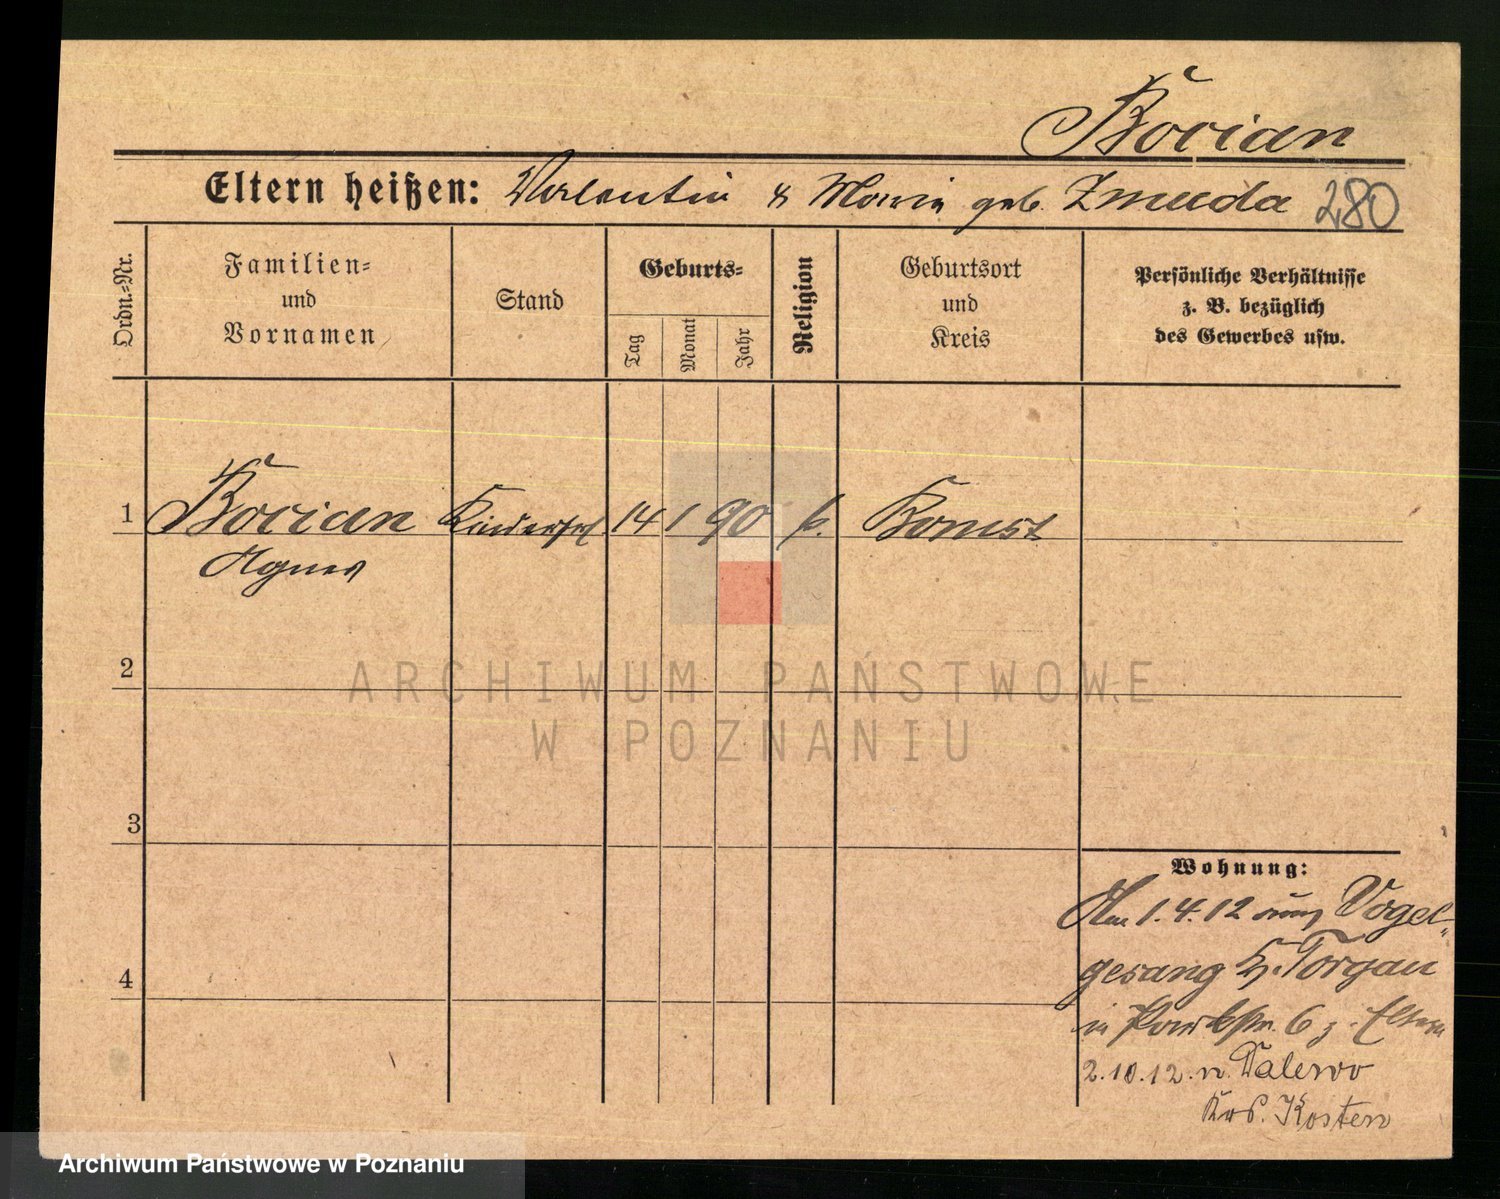 Bocian
Eltern heißen: Valentin & Maria geb. Zmuda 280
Ordn.-Nr.
Familien-
und
Vornamen
Stand
Geburts-
Tag
Monat
Jahr
Religion
Geburtsort
und
Kreis
Persönliche Verhältnisse
z. B. bezüglich
des Gewerbes usw.
1 Bocian Kinderfrl. 14 1 90 k. Bomst
Agnes
2
3
4
Wohnung:
Am 1.4.12 aus Vogel-
gesang Kr. Torgau
in Parkstr. 6 z. Eltern
2.10.12. n. Dalewo
Krs. Kosten
ARCHIWUM PAŃSTWOWE
W POZNANIU
Archiwum Państwowe w Poznaniu